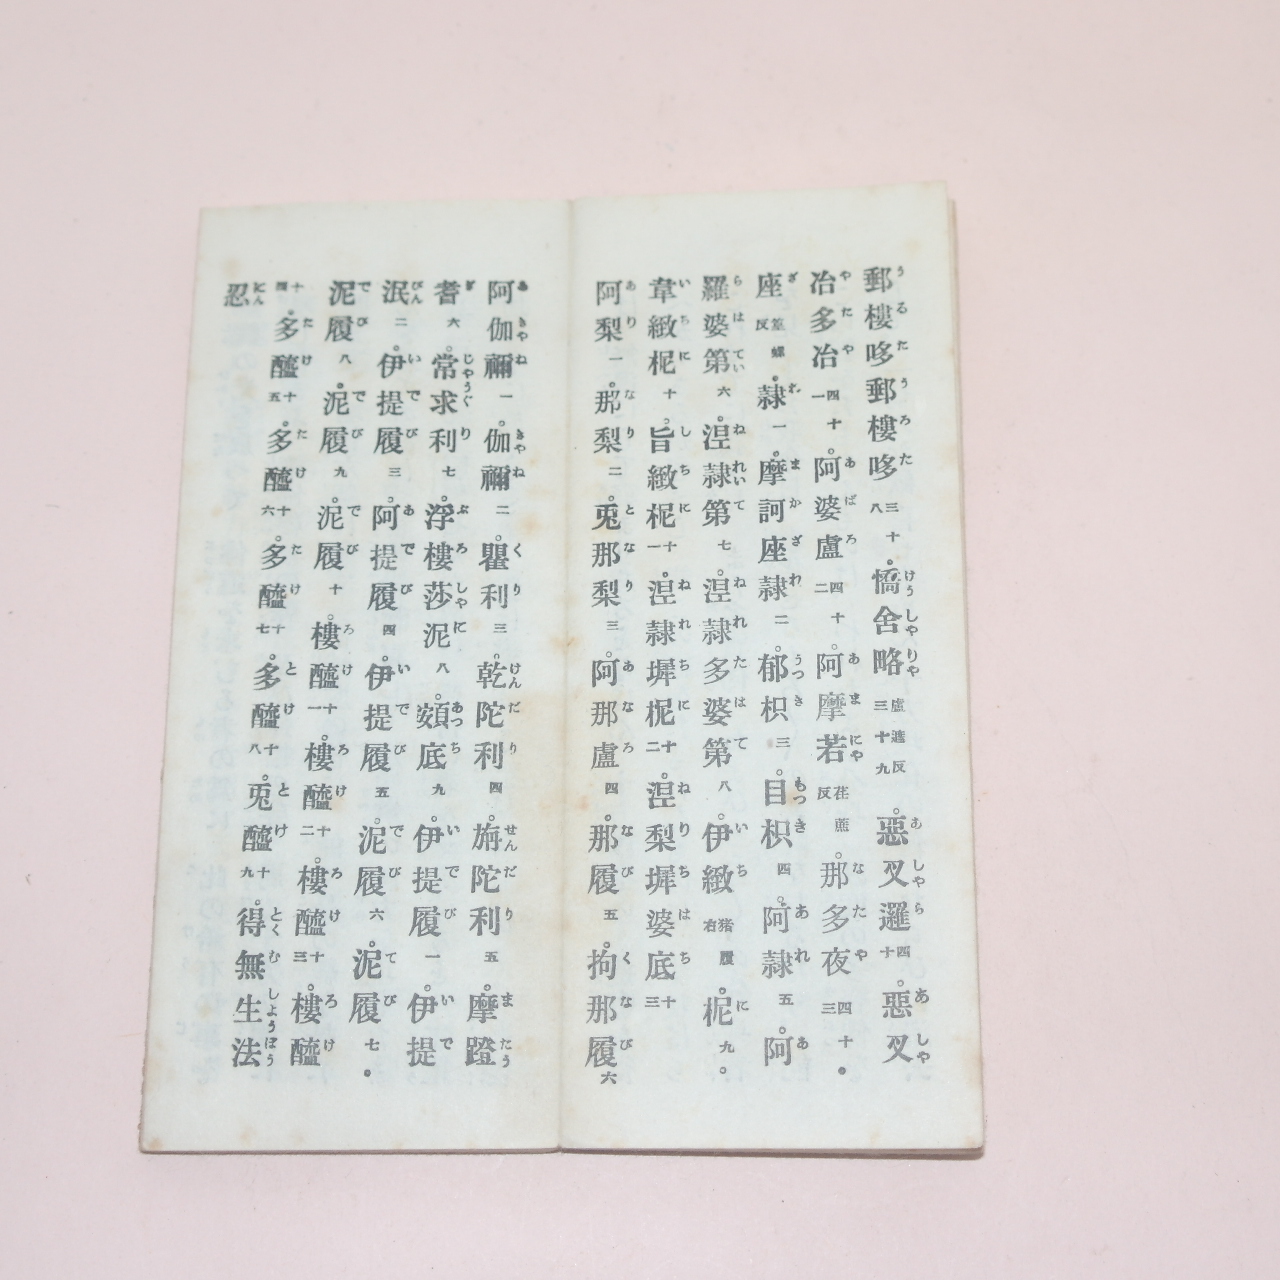 郵樓哆郵樓哆三十八憍舍略盧遮反三十九惡叉邏四十惡叉
冶多冶四十一阿婆盧四十二阿摩若荏蔗反那多夜四十三
座誓螺反隷一摩訶座隷二郁枳三目枳四阿隷五阿
羅婆第六涅隷第七涅隷多婆第八伊緻猪履右柅九
韋緻柅十旨緻柅十一涅隷墀柅十二涅梨墀婆底十三
阿梨一那梨二㝹那梨三阿那盧四那履五拘那履六
阿伽禰一伽禰二瞿利三乾陀利四旃陀利五摩蹬
耆六常求利七浮樓莎泥八頞底九伊提履一伊提
泯二伊提履三阿提履四伊提履五泥履六泥履七
泥履八泥履九泥履十樓醯十一樓醯十二樓醯十三樓醯
十四多醯十五多醯十六多醯十七多醯十八㝹醯十九得無生法
忍